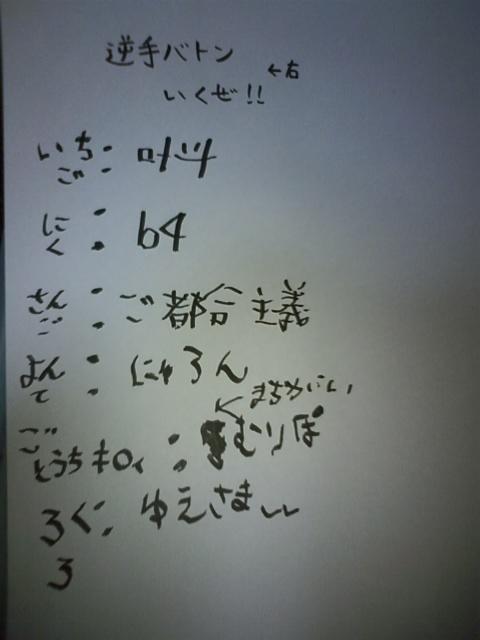 逆手バトン
←右
いくぜ!!
いちご: 叶斗
にく: b4
さんご: ご都合主義
よんて: にゃろん
←まちがい
ごとうち: むりぽ
ろく: ゆえさま
ろ